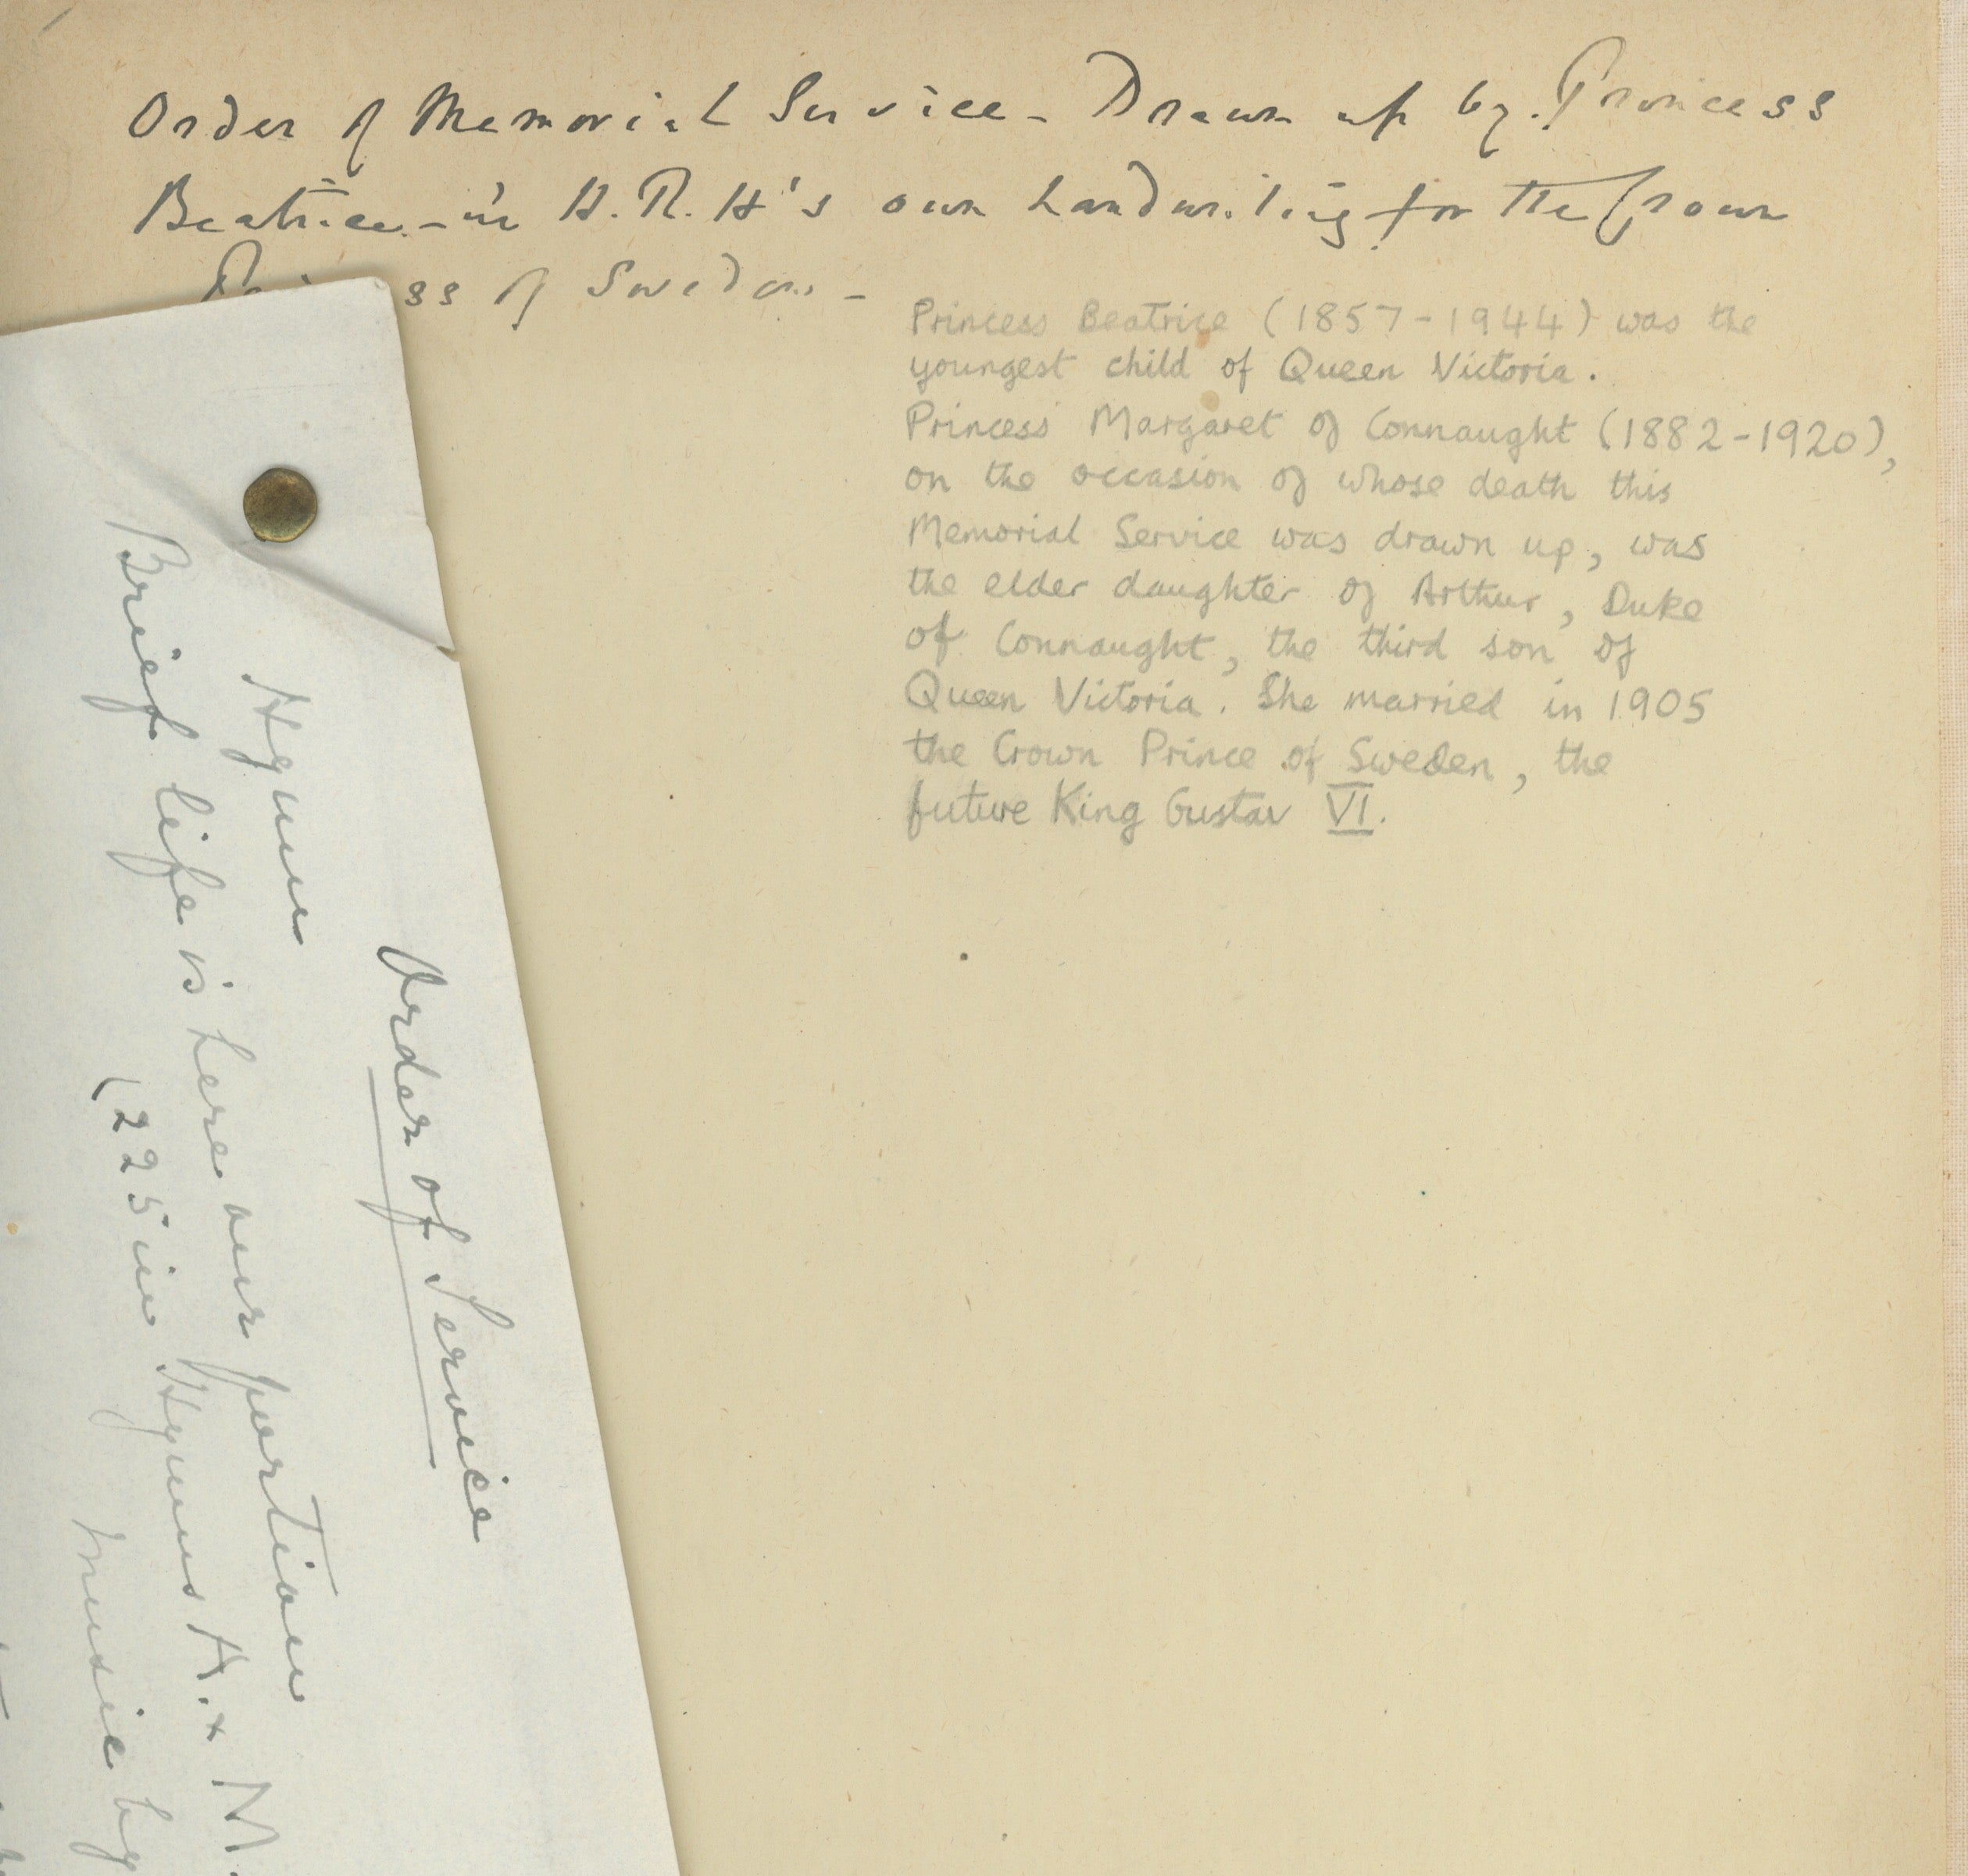 Order of Memorial Service - Drawn up by Princess
Beatrice - in H.R.H's own handwriting for the Crown
ss of Sweden -
Princess Beatrice (1857-1944) was the
youngest child of Queen Victoria.
Princess Margaret of Connaught (1882-1920),
on the occasion of whose death this
Memorial Service was drawn up, was
the elder daughter of Arthur, Duke
of Connaught, the third son of
Queen Victoria. She married in 1905
the Crown Prince of Sweden, the
future King Gustav VI.
Order of Service
Hymn
Brief life is here our portion
(225 in Hymns A. + M.
Music by